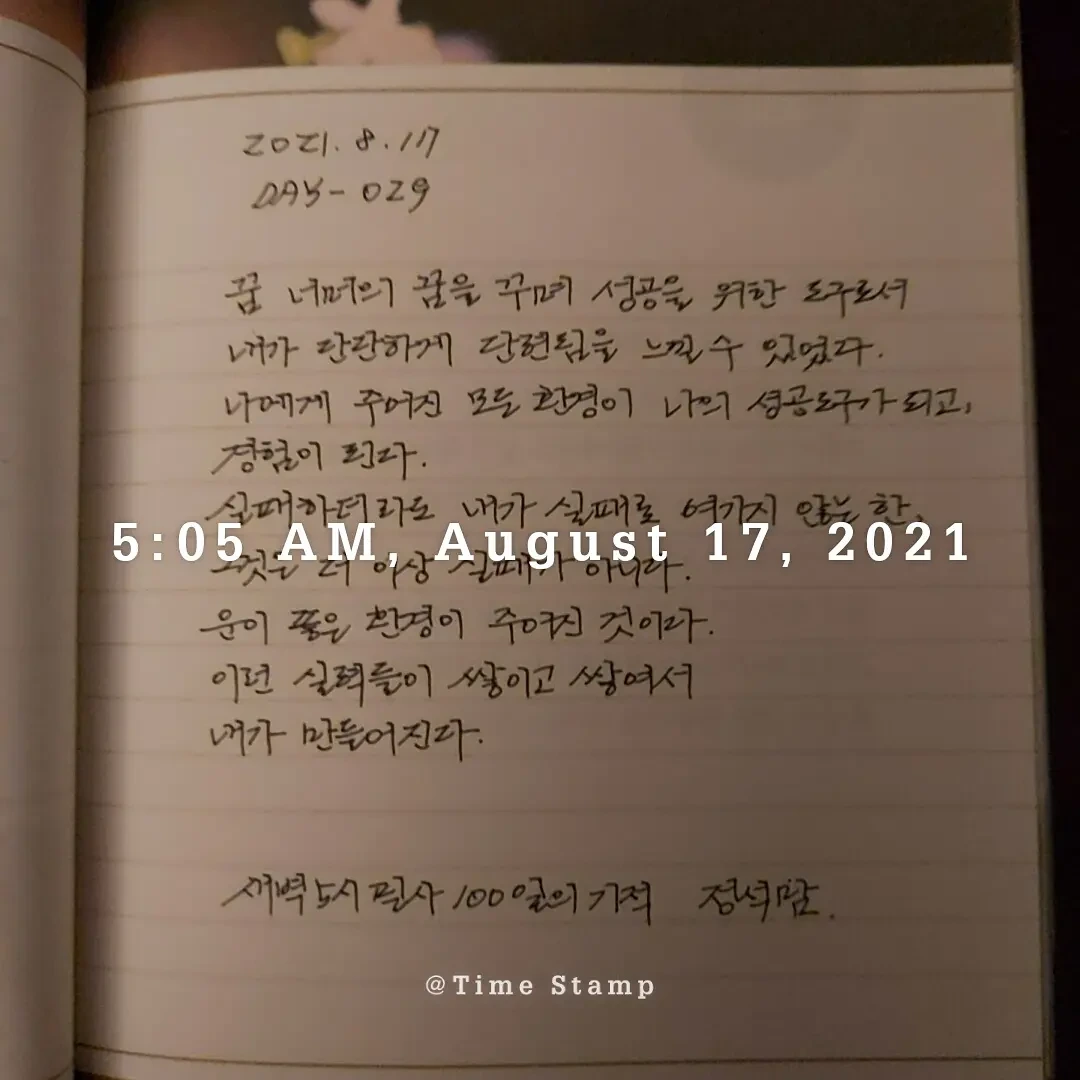 2021. 8. 17
DAY - 029
꿈 너머의 꿈을 꾸며 성공을 위한 도구로서
내가 단단하게 단련됨을 느낄 수 있었다.
나에게 주어진 모든 환경이 나의 성공도구가 되고,
경험이 된다.
실패하더라도 내가 실패로 여기지 않는 한,
5:05 AM, August 17, 2021
그것은 더 이상 실패가 아니다.
운이 좋은 환경이 주어진 것이다.
이런 실력들이 쌓이고 쌓여서
내가 만들어진다.
새벽 5시 필사 100일의 기적
@Time Stamp